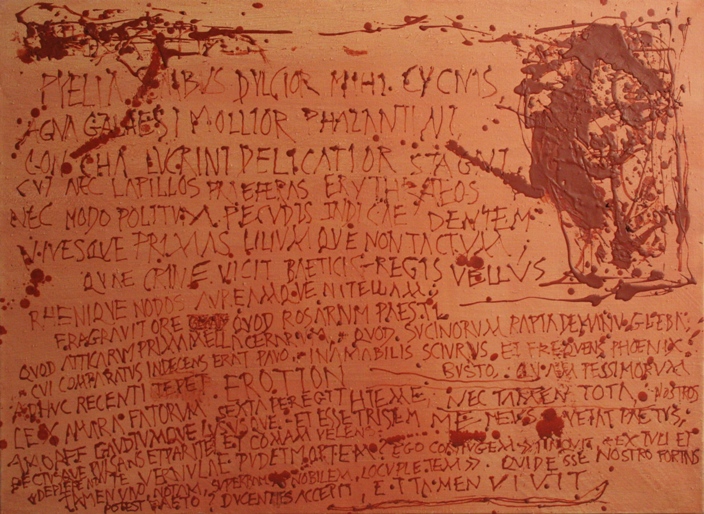 DVLCIOR MIHI CYCNIS
AGNA GALAESI MOLLIOR PHALANTINI
CONCHA LUCRINI DELICATIOR STAGNI
CVI NEC LAPILLOS PRAEFERAS ERYTHRAEOS
NEC MODO POLITVM PECVDIS INDICAE DENTEM
NIVESQVE PRIMAS LILIVMQVE NON TACTVM
QVAE CRINE VICIT BAETICI GREGIS VELLVS
RHENIQVE NODOS AVREAMQVE NITELLAM
FRAGRAVIT ORE QVOD ROSARIVM PAESTI
QVOD ATTICARVM PRIMA MELLA CERARVM QVOD SVCINORVM RAPTA DE MANV GLEBA
CVI COMPARATVS INDECENS ERAT PAVO INAMABILIS SCIVRVS ET FREQVENS PHOENIX
ADHVC RECENTI TEPET EROTION BVSTO
LEX AMARA FATORVM SEXTA PEREGIT HIEME NEC TAMEN TOTA NOSTROS
AMORES GAVDIVMQVE LVSVSQVE ET ESSE TRISTEM ME MEVS VETAT PAETVS
PECTVSQVE PVLSANS PARITER ET COMAM VELLENS
DEFLERE TE VERNVLAE PVDET MORTEM EGO CONIVGEM EXTVLI ET
TAMEN VIVO NOTAM SVPERBAM NOBILEM LOCVPLETEM QVID ESSE NOSTRO FORTIVS
POTEST PAETO? DVCENTIES ACCEPIT, ET TAMEN VIVIT